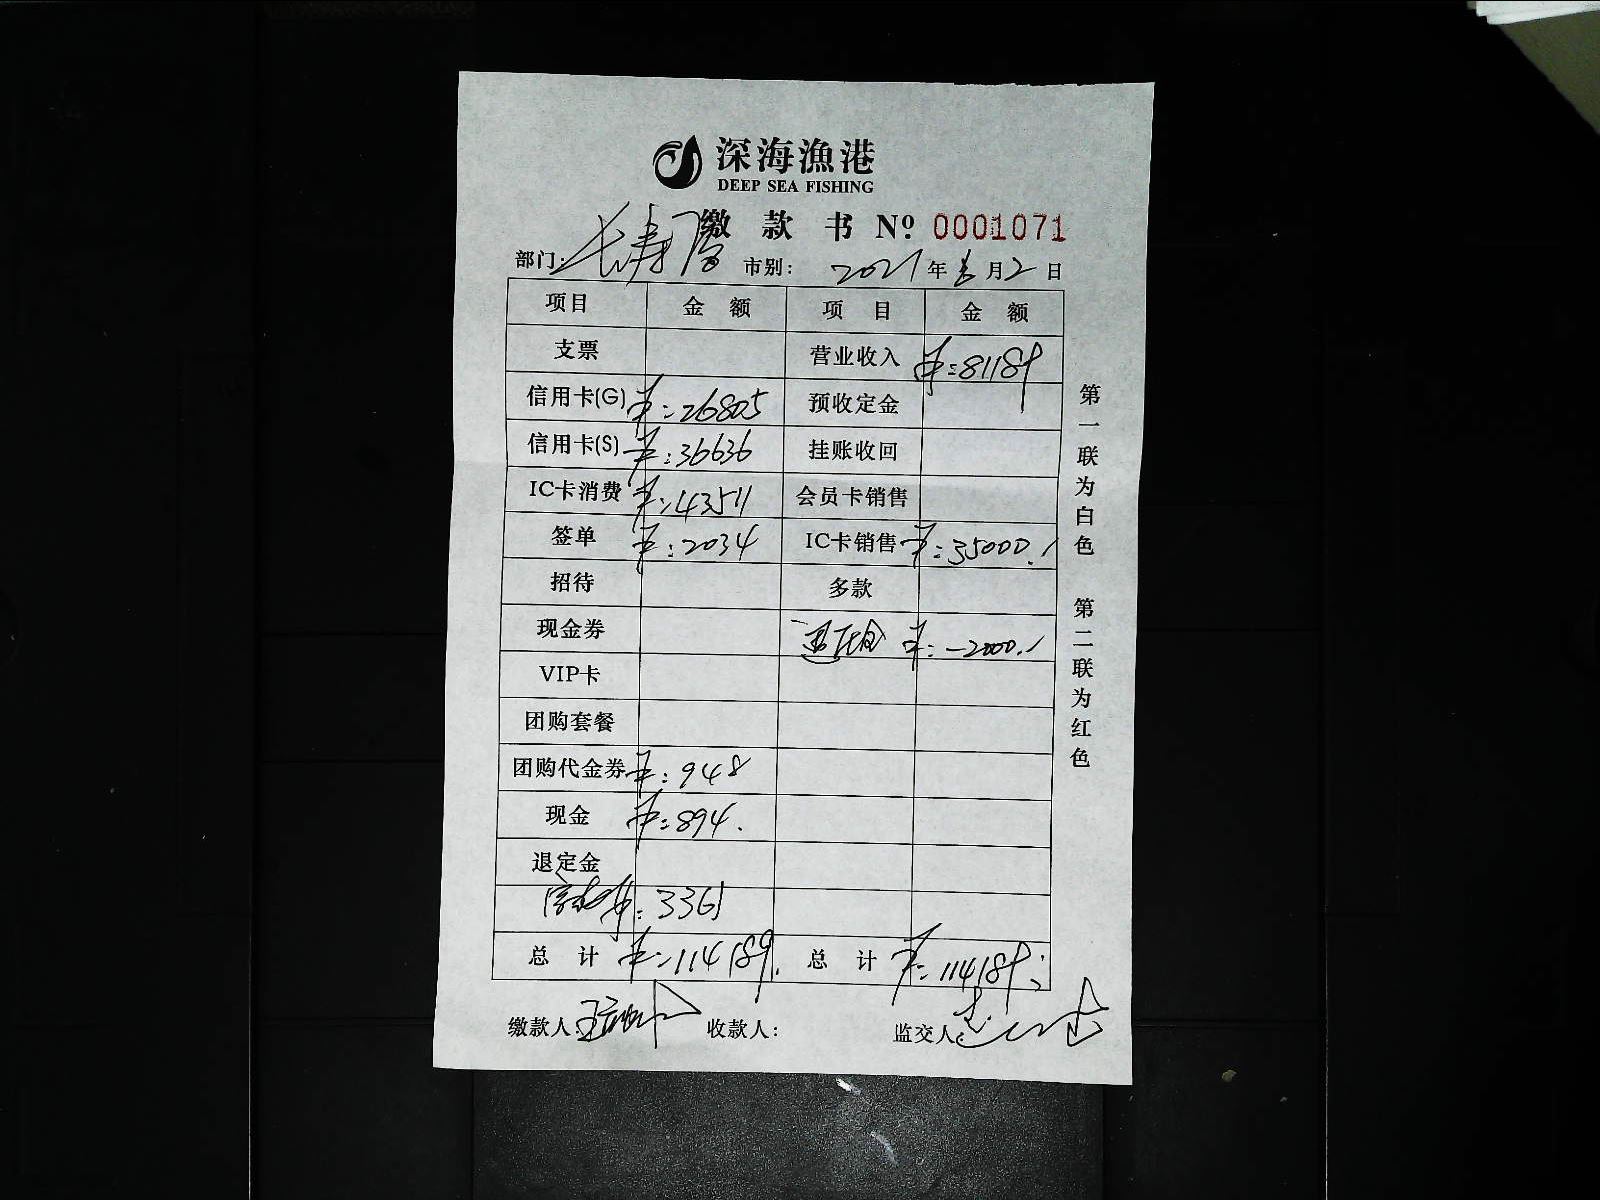 深海漁港
DEEP SEA FISHING
缴款书 № 0001071
部门: 长寿 市别: 2021年 月2日
项目 金额 项目 金额
支票 营业收入 ¥:81189
信用卡(G) ¥:26805 预收定金
信用卡(S) ¥:36636 挂账收回
IC卡消费 ¥:43511 会员卡销售
签单 ¥:2034 IC卡销售 ¥:35000.
招待 多款
现金券 退定金 ¥:-2000.
VIP卡
团购套餐
团购代金券 ¥:948
现金 ¥:894.
退定金
¥:3361
总计 ¥:114189. 总计 ¥:114189
缴款人: 收款人: 监交人:
第一联为白色 第二联为红色